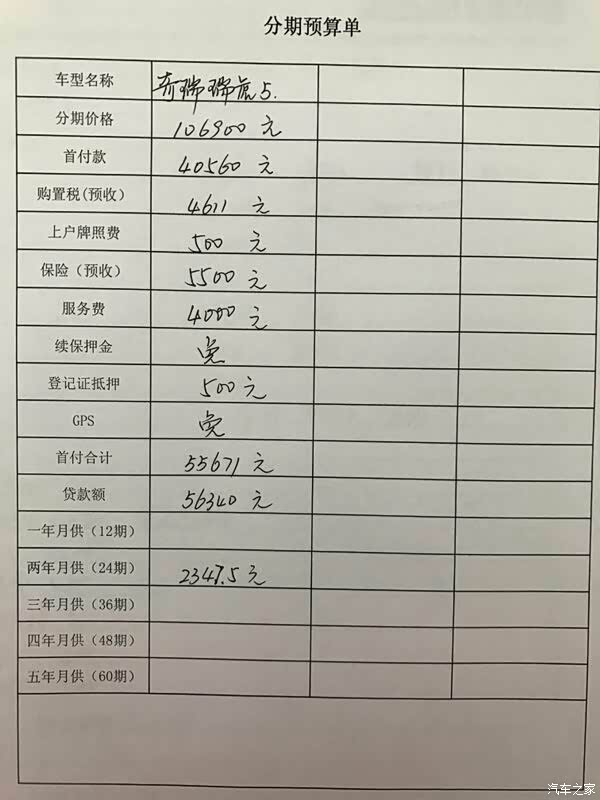 分期预算单
车型名称 奇瑞瑞虎5.
分期价格 106900 元
首付款 40560 元
购置税(预收) 4611 元
上户牌照费 500 元
保险（预收） 5500 元
服务费 4000 元
续保押金 免
登记证抵押 500元
GPS 免
首付合计 55671 元
贷款额 56340 元
一年月供（12期）
两年月供（24期） 2347.5元
三年月供（36期）
四年月供（48期）
五年月供（60期）
汽车之家